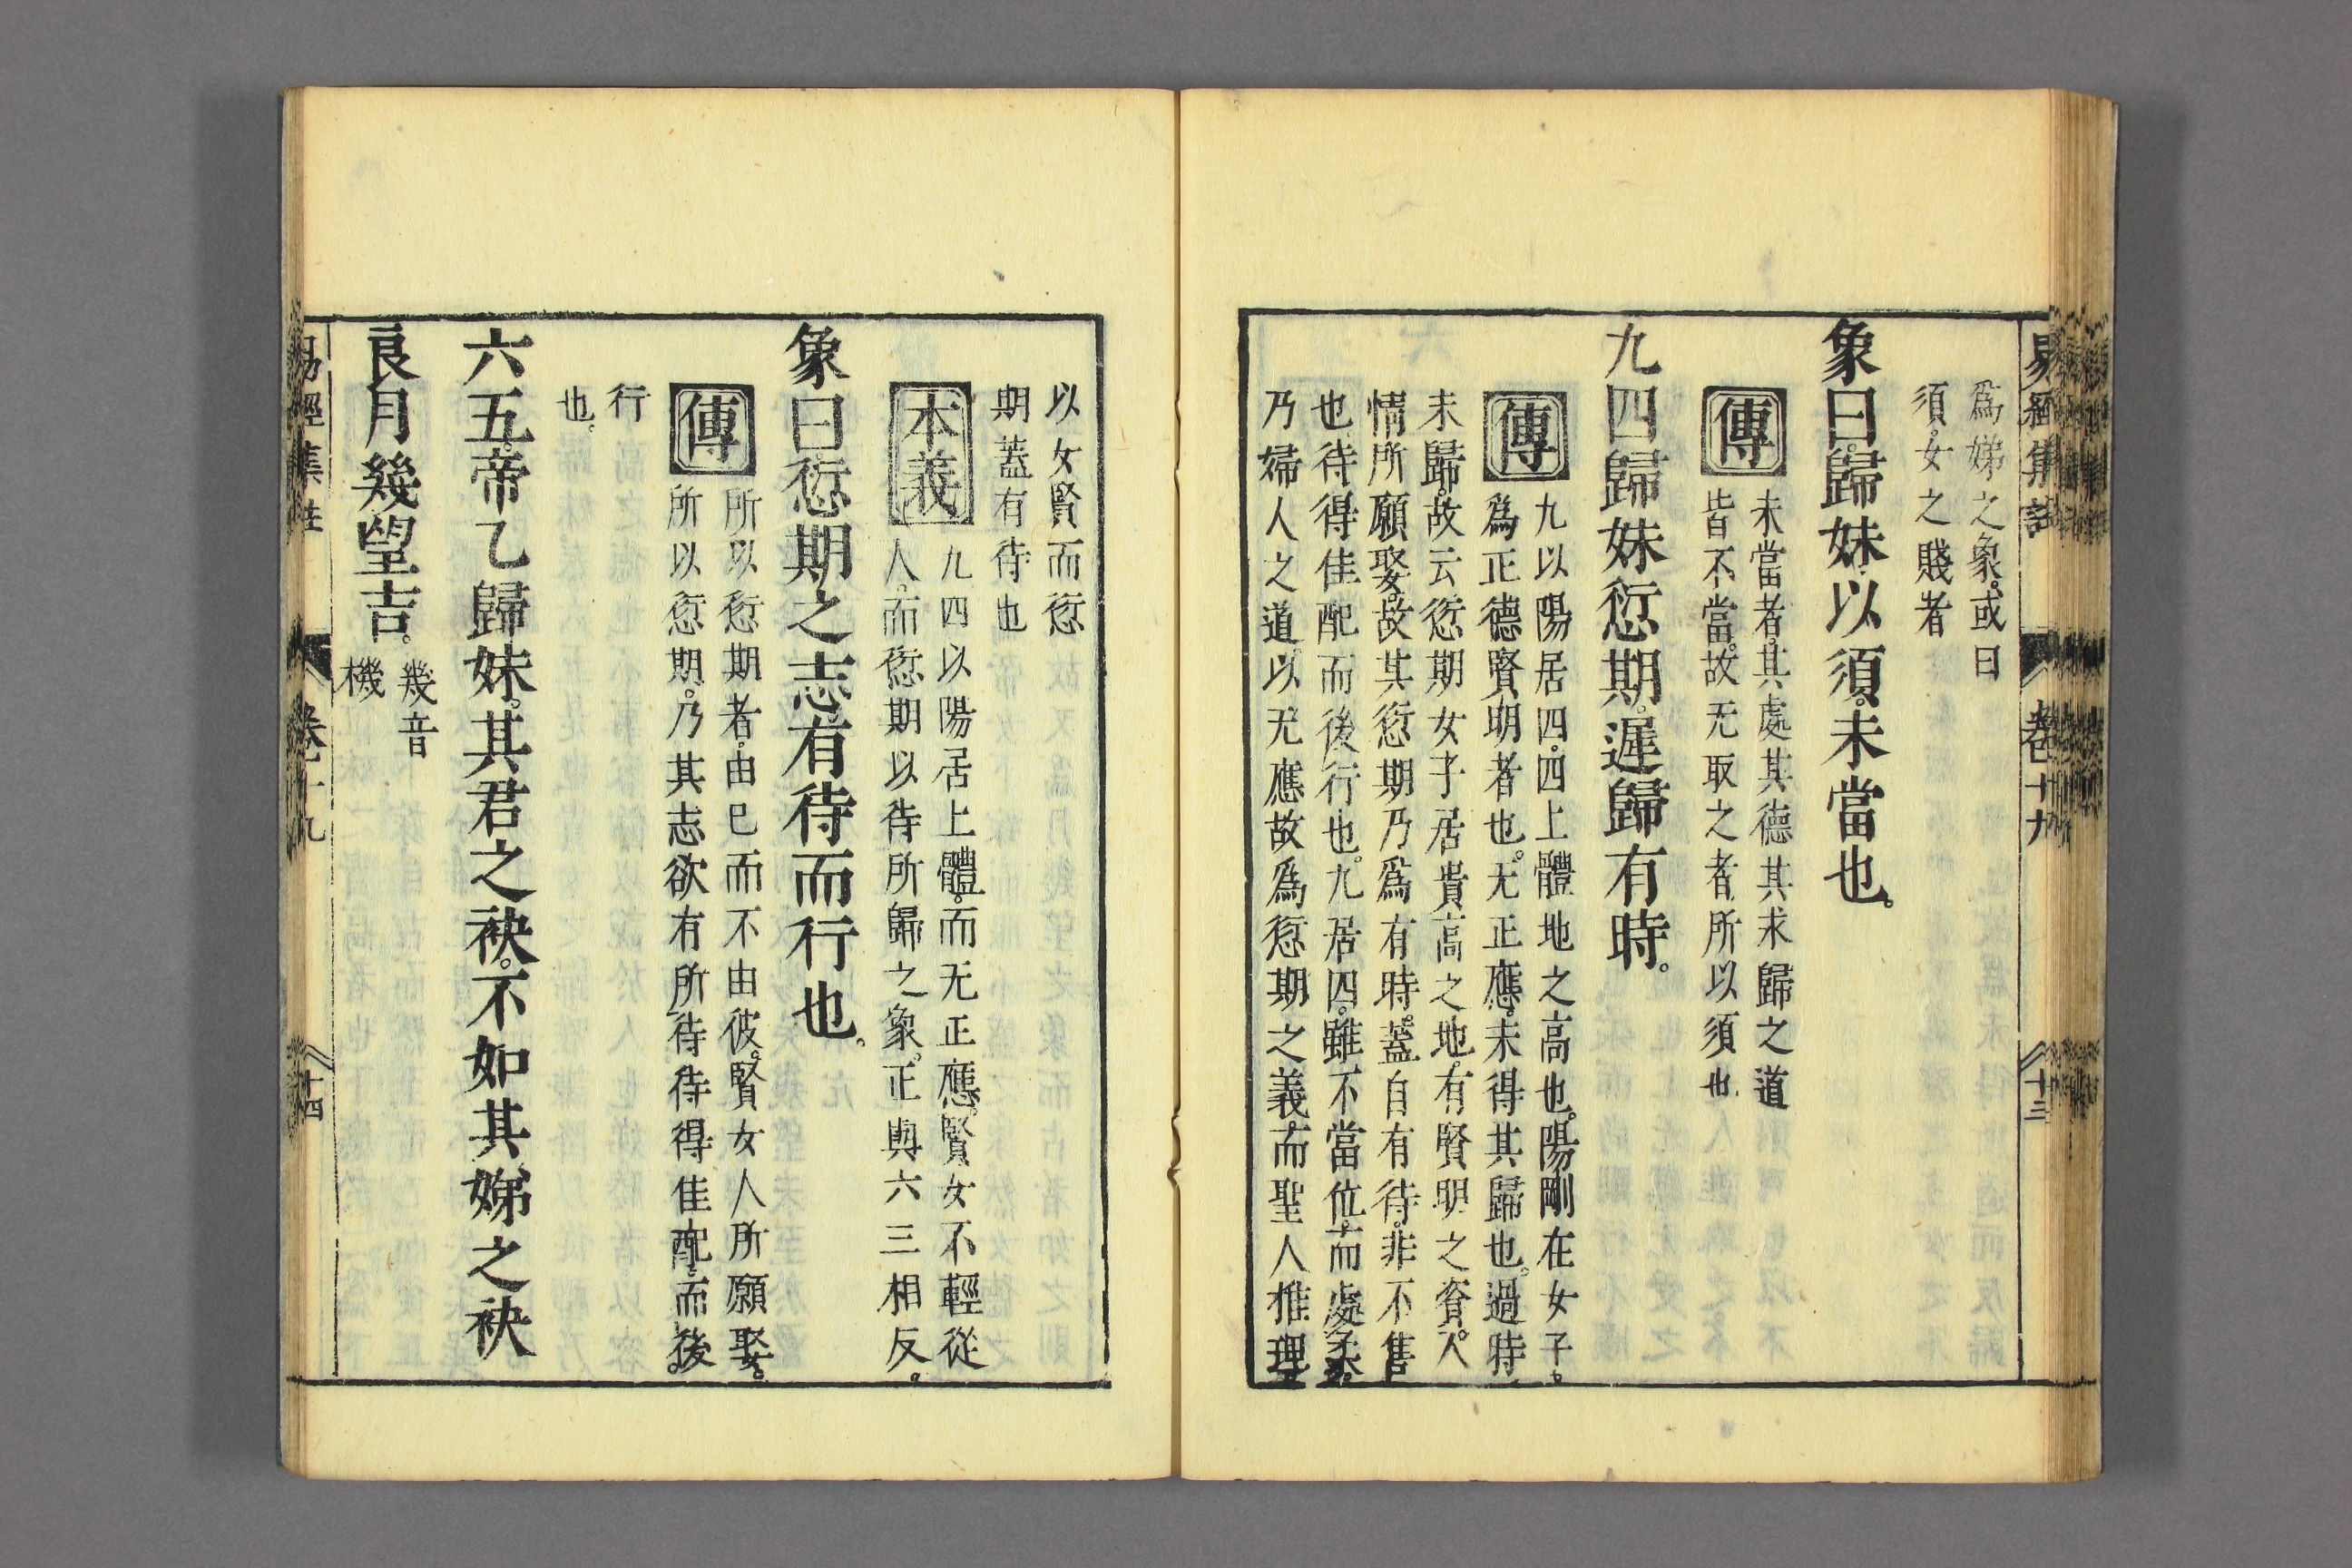 易經集註 卷十九 十三
爲娣之象。或曰
須。女之賤者
象曰。歸妹以須。未當也。
傳
未當者。其處其德其求歸之道
皆不當。故无取之者。所以須也
九四歸妹愆期。遲歸有時。
傳
九以陽居四。四上體地之高也。陽剛在女子。
爲正德賢明者也。无正應。未得其歸也。過時
未歸。故云愆期女子居貴高之地。有賢明之資。人
情所願娶。故其愆期乃爲有時。蓋自有待。非不售
也。待得佳配而後行也。九居四。雖不當位。而處柔。
乃婦人之道。以无應故爲愆期之義。而聖人推理
以女賢而愆
期蓋有待也
本義
九四以陽居上體。而无正應。賢女不輕從
人。而愆期以待所歸之象。正與六三相反。
象曰。愆期之志。有待而行也。
傳
所以愆期者。由己而不由彼。賢女人所願娶。
所以愆期。乃其志欲有所待。待得佳配。而後。
行
也。
六五。帝乙歸妹。其君之袂。不如其娣之袂
良。月幾望吉。
幾音
機
易經集註 卷十九 十四